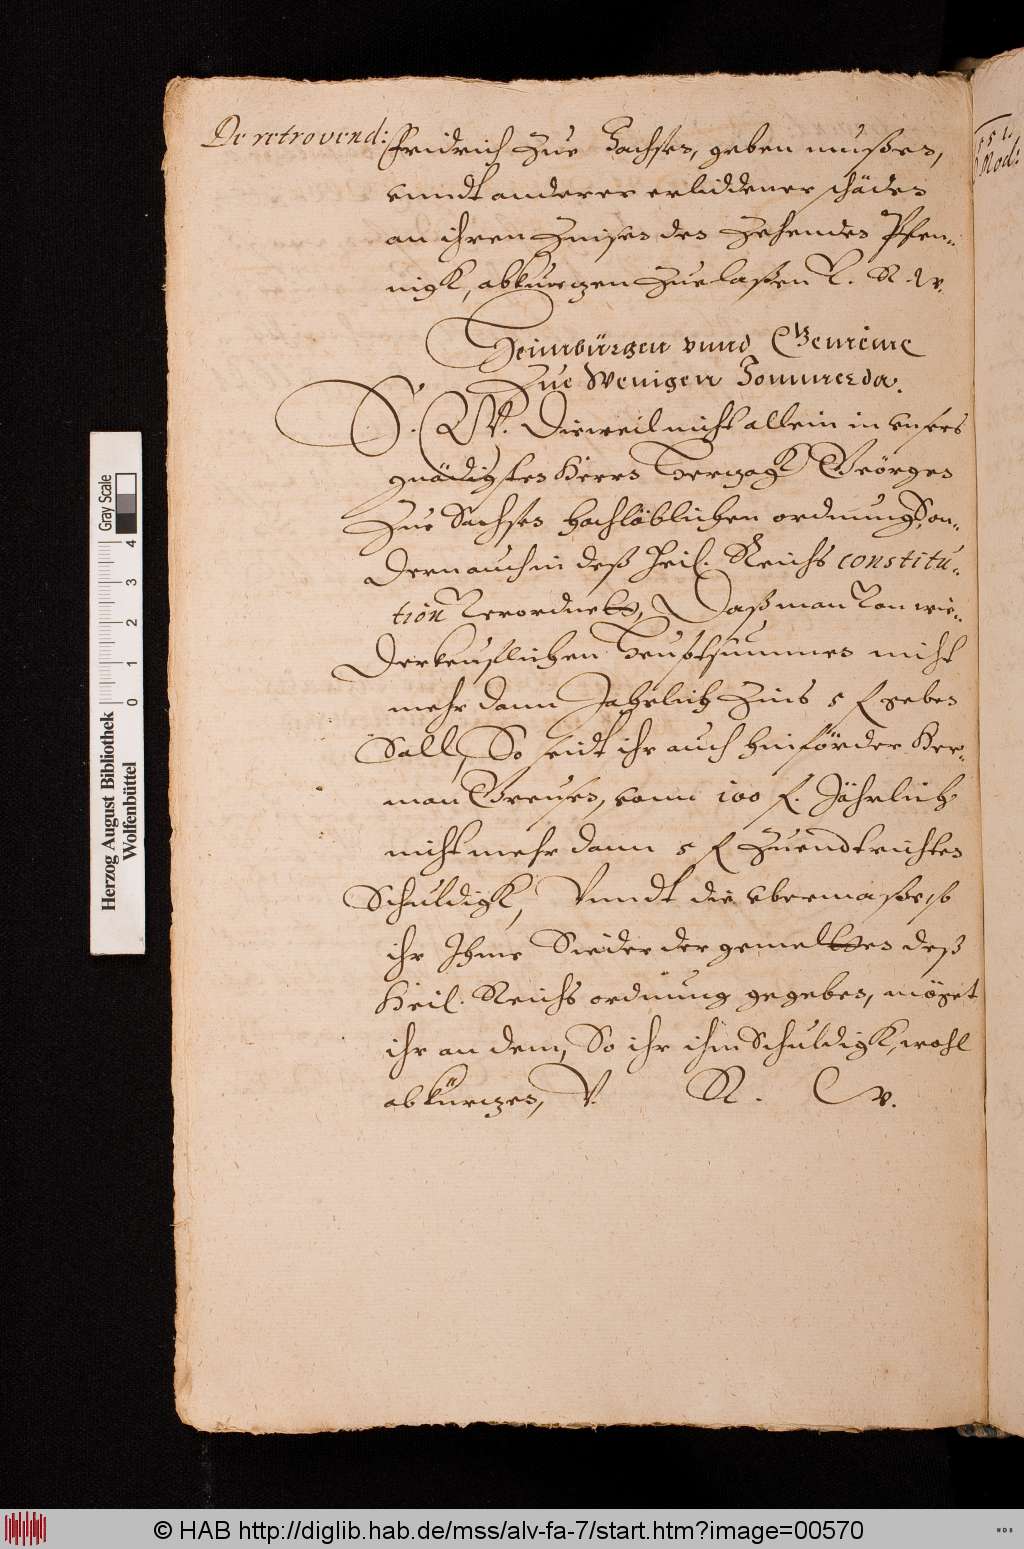 De retrovend:
Fridrich Zue Sachsen, geben mußen,
vnndt anderer erliddener schäden
an ihren Zinsen den Zehenden Pfen-
nigk, abkurtzen Zuelaßen V. R. W.
Heimbürgen vnnd Gemeine
Zue Wenigen Sommerda.
S. W. Dieweil nicht allein in vnsers
gnädigsten Herrn Hertzogk Geörgen
Zue Sachsen hochlöblichen ordnung, Son-
dern auch in deß Heil. Reichs constitu-
tion verordnett, Daß man von wie-
derkeuflichen Heuptsummen nicht
mehr dann Jährlich Zins 5 f geben
Soll, So seidt ihr auch hinförder Her-
man Greusen, vonn 100 f. Jährlich
nicht mehr dann 5 f Zuendtrichten
Schuldigk, Vnndt die vbermaße, so
ihr Ihme Sieder der gemeltten deß
Heil. Reichs ordnung gegeben, möget
ihr an dem, So ihr ihm Schuldigk, wohl
abkürtzen, V. R. W.
151.
Mod:
Herzog August Bibliothek
Wolfenbüttel
0 1 2 3 4
Gray Scale
© HAB http://diglib.hab.de/mss/alv-fa-7/start.htm?image=00570